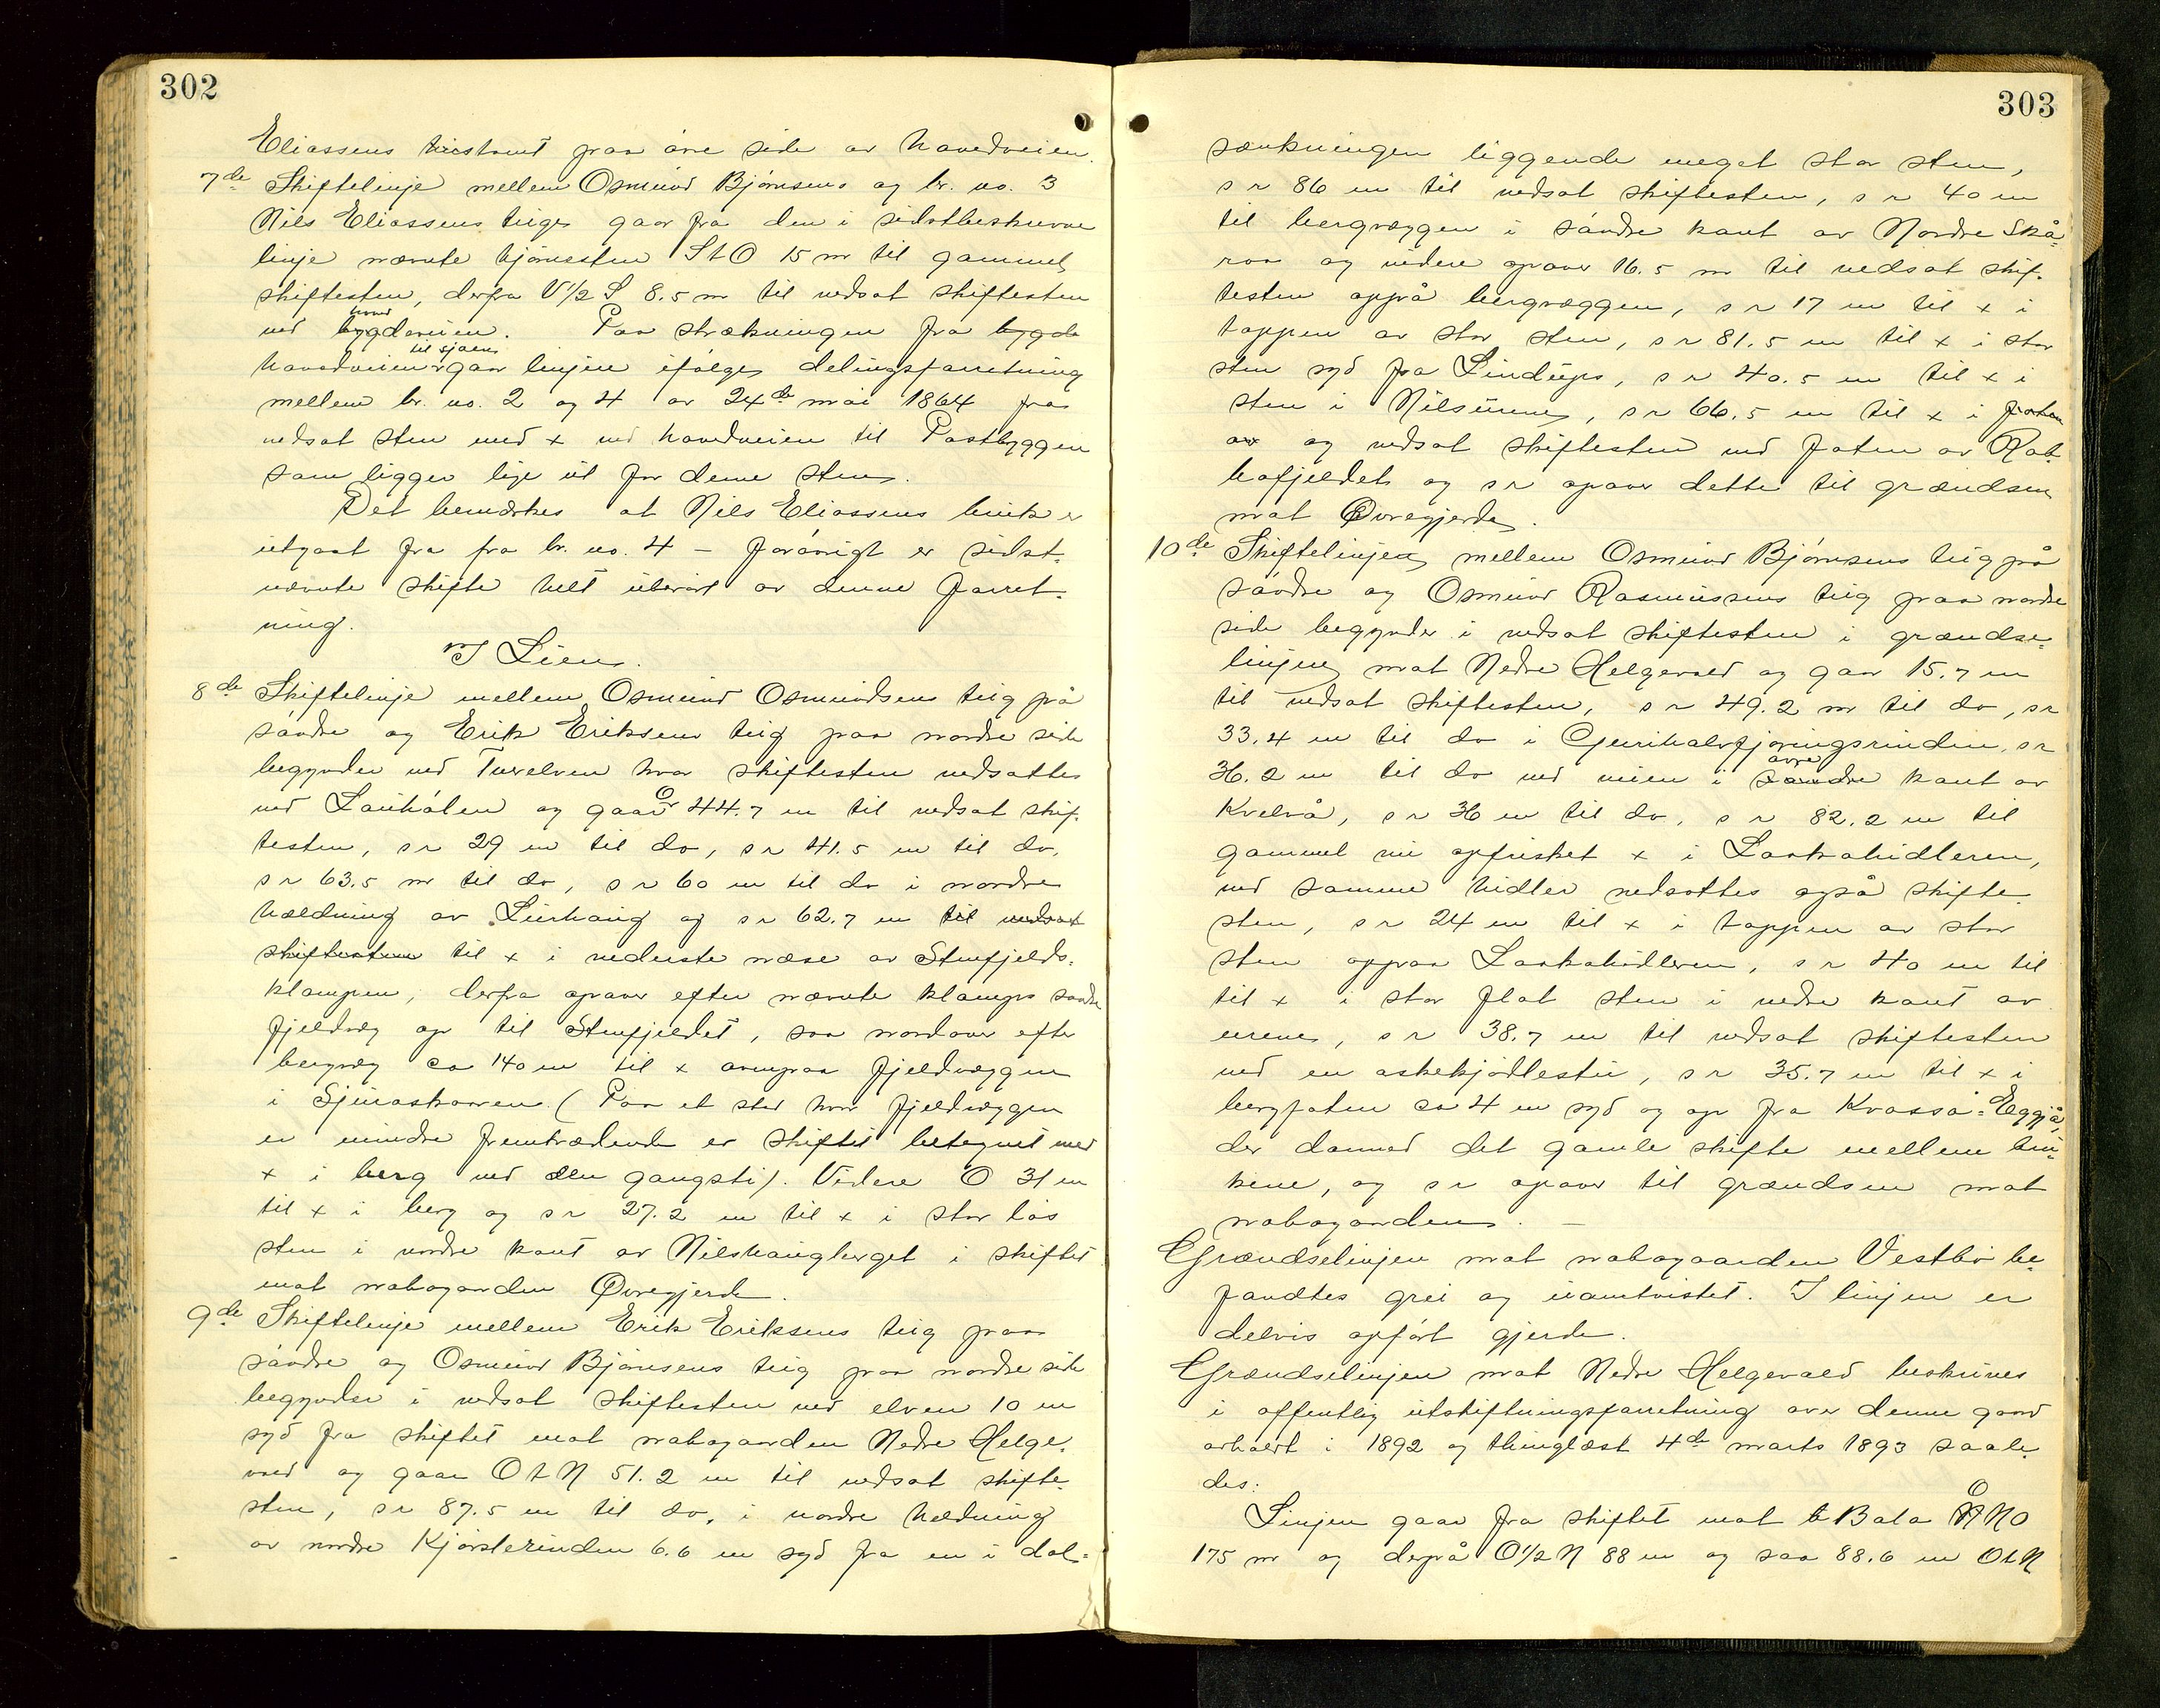 302
Eliassens paa øvre side av hovedveien.
7de Skiftelinje mellem Osmund Bjørnsens og br. no. 3
Nils Eliassens teiger gaar fra den i sidstbeskrevne
linje nævnte hjørnesten S t O 15 m til gammel
skiftesten, derfra V 1/2 S 8.5 m til nedsat skiftesten
ved hovedveien. Paa strækningen fra bygde
hovedveien til sjøen gaar linjen ifølge delingsforretning
mellem br. no. 2 og 4 av 24de mai 1864 fra
nedsat sten med x ved hovedveien til Postbryggen
som ligger lige ut for denne sten.
Det bemærkes at Nils Eliassens bruk er
utgaat fra fra br. no. 4 – forøvrigt er sidst-
nævnte skifte helt uberørt av denne forret-
ning.
I Lien.
8de Skiftelinje mellem Osmund Osmundsens teig på
søndre og Erik Eriksens teig paa nordre side
begynder ved Tuvelven hvor skiftesten nedsattes
ved Lauhølen og gaar O 44.7 m til nedsat skif-
testen, s r 29 m til do, s r 41.5 m til do,
s r 63.5 m til do, s r 60 m til do i nordre
hældning av Liirhaug og s r 62.7 m til nedsat
skiftesten til x i nederste næse av Stenfjelds-
klampen, derfra opover efter nævnte klamps søndre
fjeldvæg op til Stenfjeldet, saa nordover efter
bergvæg ca 140 m til x ovenpaa fjeldvæggen
i Sjuraskaaren. (Paa et sted hvor fjeldvæggen
er mindre fremtrædende er skiftet betegnet med
x i berg ved den gangsti). Videre O 31 m
til x i berg og s r 27.2 m til x i stor løs
sten i nordre kant av Nilshaugberget i skiftet
mot nabogaarden Øvregjerde.
9de Skiftelinje mellem Erik Eriksens teig paa
søndre og Osmund Bjørnsens teig paa nordre side
begynder i nedsat skiftesten ved elven 10 m
syd fra skiftet mot nabogaarden Nedre Helge-
vold og gaar O t N 51.2 m til nedsat skifte-
sten, s r 87.5 m til do, i nordre hældning
av nordre Kjørsterinden 6.6 m syd fra en i dal-
303
sænkningen liggende meget stor sten,
s r 86 m til nedsat skiftesten, s r 40 m
til bergvæggen i søndre kant av Nordre Skå-
raa og videre opover 16.5 m til nedsat skif-
testen oppå bergvæggen, s r 17 m til x i
toppen av stor sten, s r 81.5 m til x i stor
sten syd fra Lindups, s r 40.5 m til x i
sten i Nilsurene, s r 66.5 m til x i foten
av og nedsat skiftesten ved foten av Rab-
bafjeldet og s r opover dette til grændsen
mot Øvregjerde.
10de Skiftelinjen mellem Osmund Bjørnsens teig på
søndre og Osmund Rasmussens teig paa nordre
side begynder i nedsat skiftesten i grændse-
linjen mot Nedre Helgevold og gaar 15.7 m
til nedsat skiftesten, s r 49.2 m til do, s r
33.4 m til do i s r
36.2 m til do ved veien i øvre søndre kant av
Kvelvå, s r 36 m til do, s r 82.2 m til
gammel nu opfrisket x i Laakahidleren,
ved samme hidler nedsattes også skifte-
sten, s r 24 m til x i toppen av stor
sten oppaa Laakahidleren, s r 40 m til
til x i stor flat sten i nedre kant av
urene, s r 38.7 m til nedsat skiftesten
ved en askekjødlestu, s r 35.7 m til x i
bergfoten ca 4 m syd og op fra Kvasså-Eggjå,
der dannes det gamle skifte mellem bru-
kene, og s r opover til grændsen mot
nabogaarden. –
Grændselinjen mot nabogaarden Vestbø be-
fandtes grei og uomtvistet. I linjen er
delvis opført gjerde.
Grændselinjen mot Nedre Helgevold beskrives
i offentlig utskiftningsforretning over denne gaard
avholdt i 1892 og thinglæst 4de marts 1893 saale-
des:
Linjen gaar fra skiftet mot b Bala O N O
175 m og derpå O 1/2 N 88 m og saa 88.6 m O t N